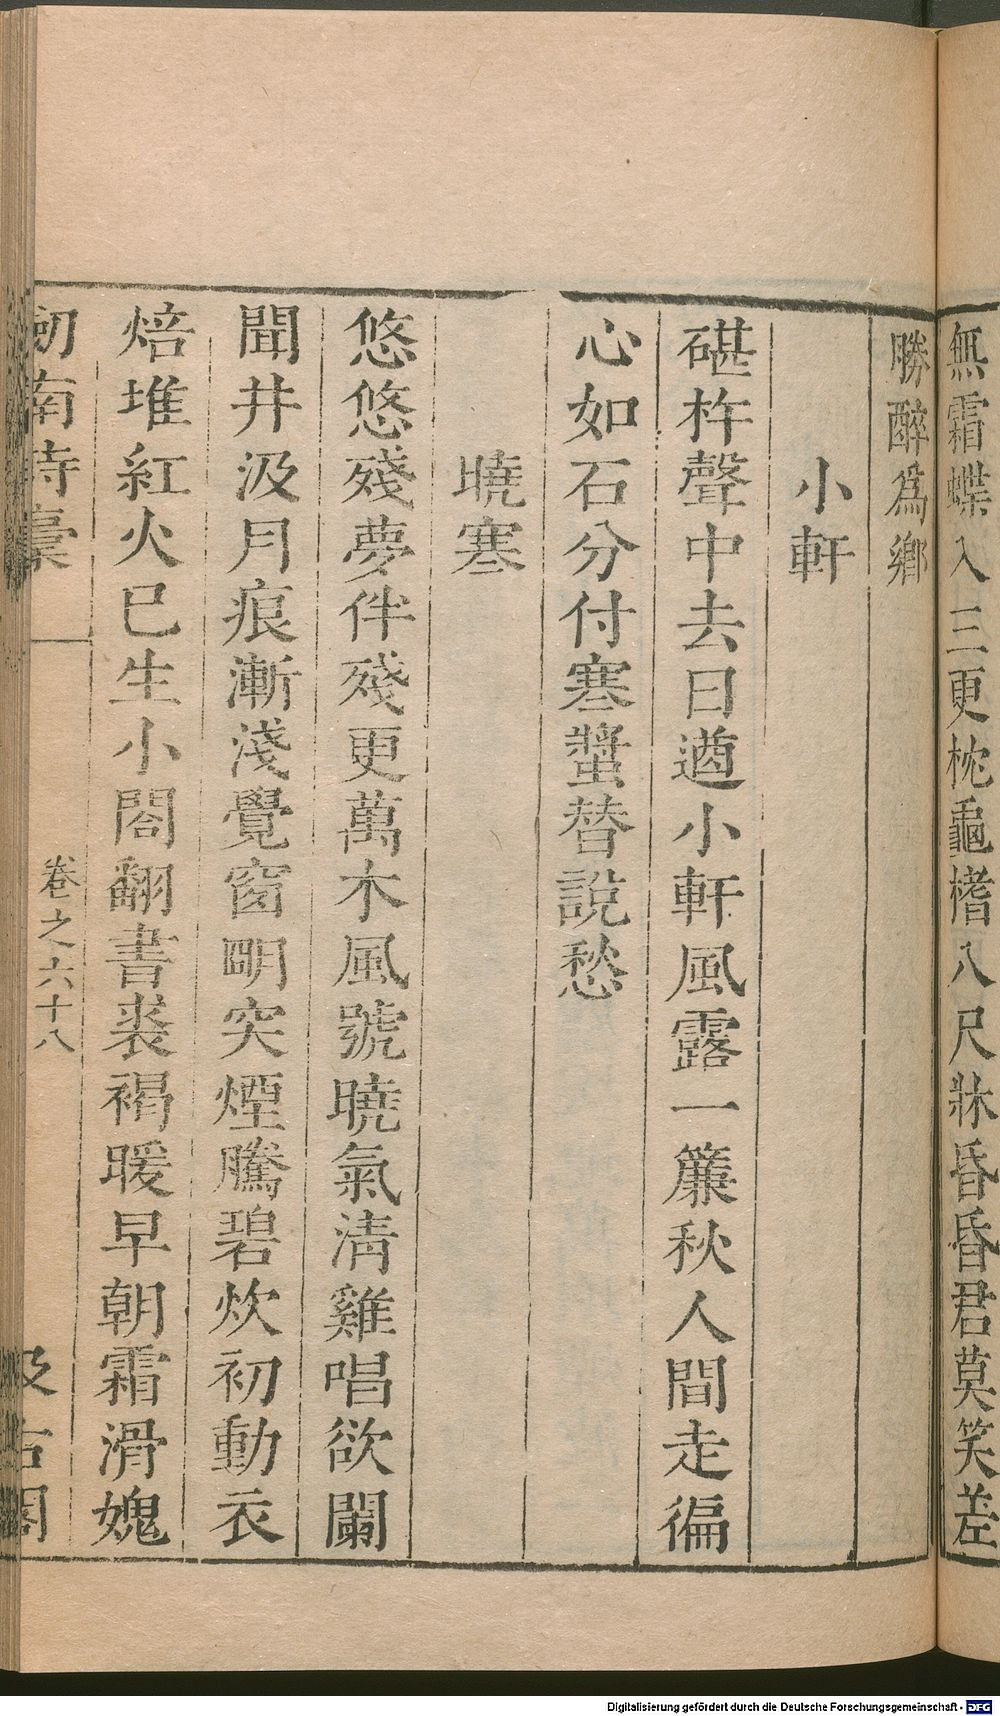 無霜蝶入三更枕龜榰八尺牀昏昏君莫笑差
勝醉爲鄉
小軒
碪杵聲中去日遒小軒風露一簾秋人間走徧
心如石分付寒螿替說愁
曉寒
悠悠殘夢伴殘更萬木風號曉氣淸雞唱欲闌
聞井汲月痕漸淺覺窗明突煙騰碧炊初動衣
焙堆紅火已生小閤翻書裘褐暖早朝霜滑媿
劒南詩藳
卷之六十八
汲古閣
Digitalisierung gefördert durch die Deutsche Forschungsgemeinschaft - DFG